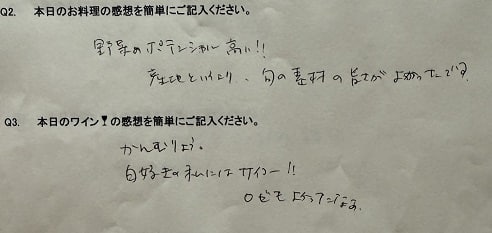 Q2. 本日のお料理の感想を簡単にご記入ください。
野菜のポテンシャル高い!!
産地といい、旬の素材の皆さがよかったです。
Q3. 本日のワイン🍷の感想を簡単にご記入ください。
かんむりょう。
白好きの私にはサイコー!!
ロゼもよかったです。